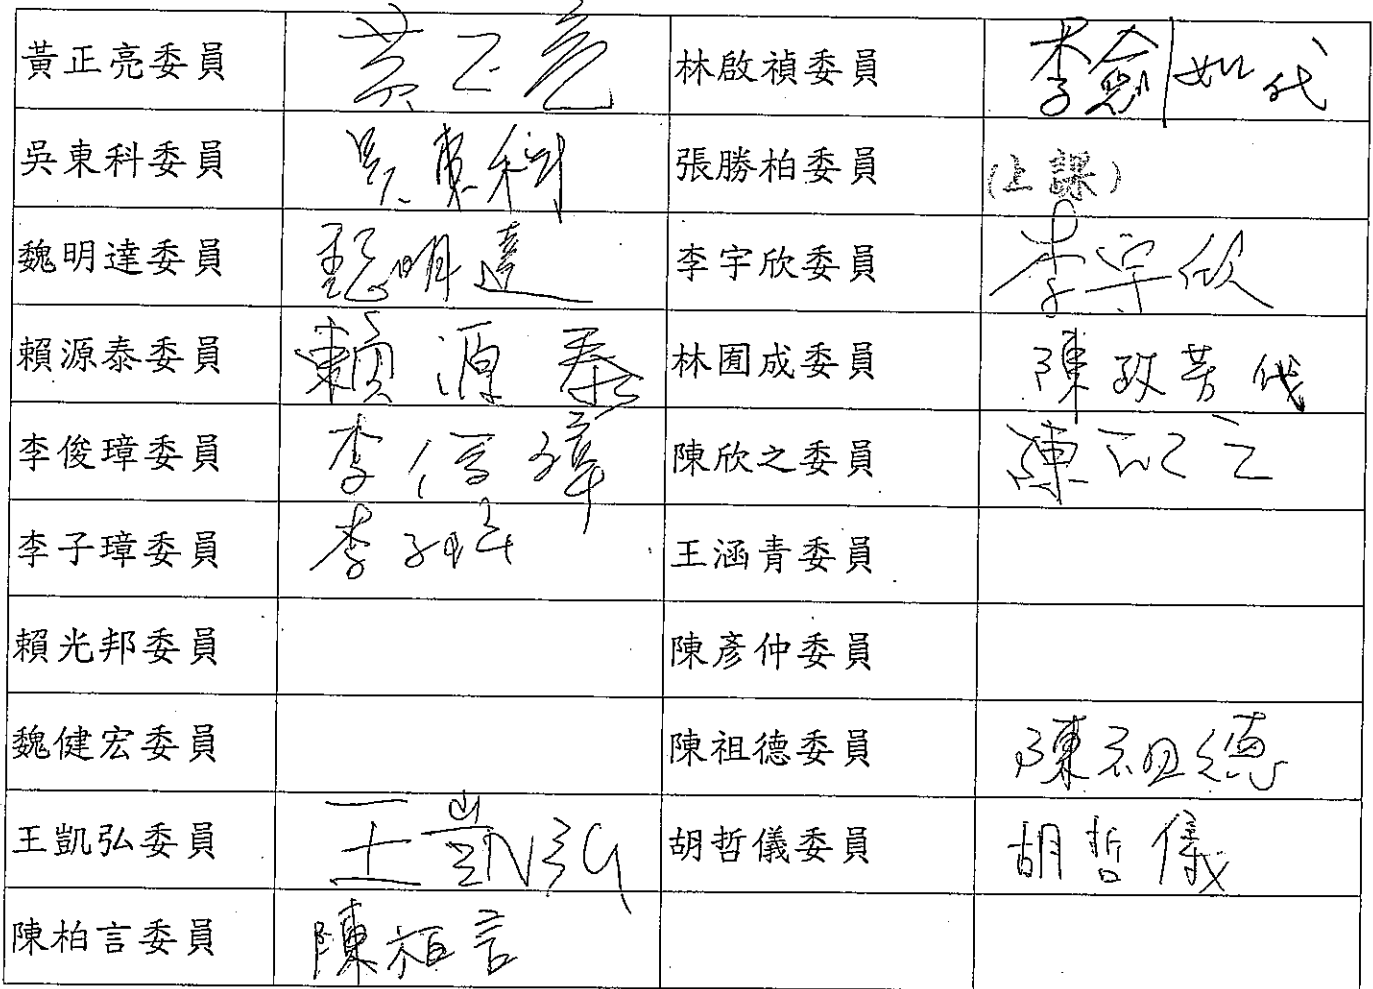 黃正亮委員 黃正亮 林啟禎委員 李劍如代
吳東科委員 吳東科 張勝柏委員 (上課)
魏明達委員 魏明達 李宇欣委員 李宇欣
賴源泰委員 賴源泰 林囿成委員 陳玫芳代
李俊璋委員 李俊璋 陳欣之委員 陳欣之
李子璋委員 李子璋 王涵青委員
賴光邦委員 陳彥仲委員
魏健宏委員 陳祖德委員 陳祖德
王凱弘委員 王凱弘 胡哲儀委員 胡哲儀
陳柏言委員 陳柏言